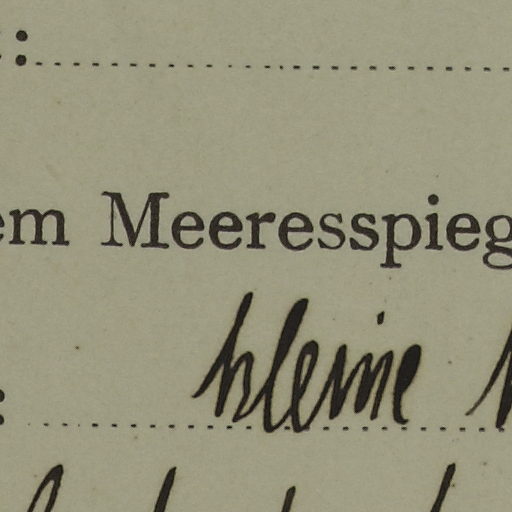 :
em Meeresspieg
: kleine